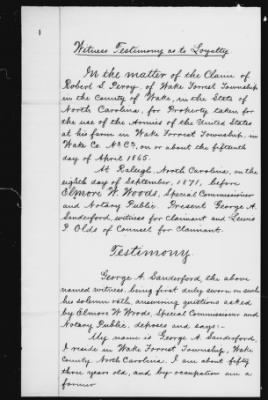 1
Witness Testimony as to Loyalty
In the matter of the Claim of
Robert S. Perry, of Wake Forrest Township
in the County of Wake, in the State of
North Carolina, for Property taken for
the use of the Armies of the United States
at his farm in Wake Forrest Township, in
Wake Co. N.C., on or about the fifteenth
day of April 1865.
At Raleigh, North Carolina, on the
eighth day of September, 1871, before
Elmore W. Woods, Special Commissioner
and Notary Public. Present George A.
Sanderford, witness for claimant and Lewis
P. Olds of Counsel for Claimant.
Testimony
George A. Sanderford, the above
named witness, being first duly sworn on
his solemn oath, answering questions asked
by Elmore W. Woods, Special Commissioner and
Notary Public, deposes and says:-
My name is George A. Sanderford,
I reside in Wake Forrest Township, Wake
County North Carolina. I am about fifty
three years old, and by occupation am a
farmer